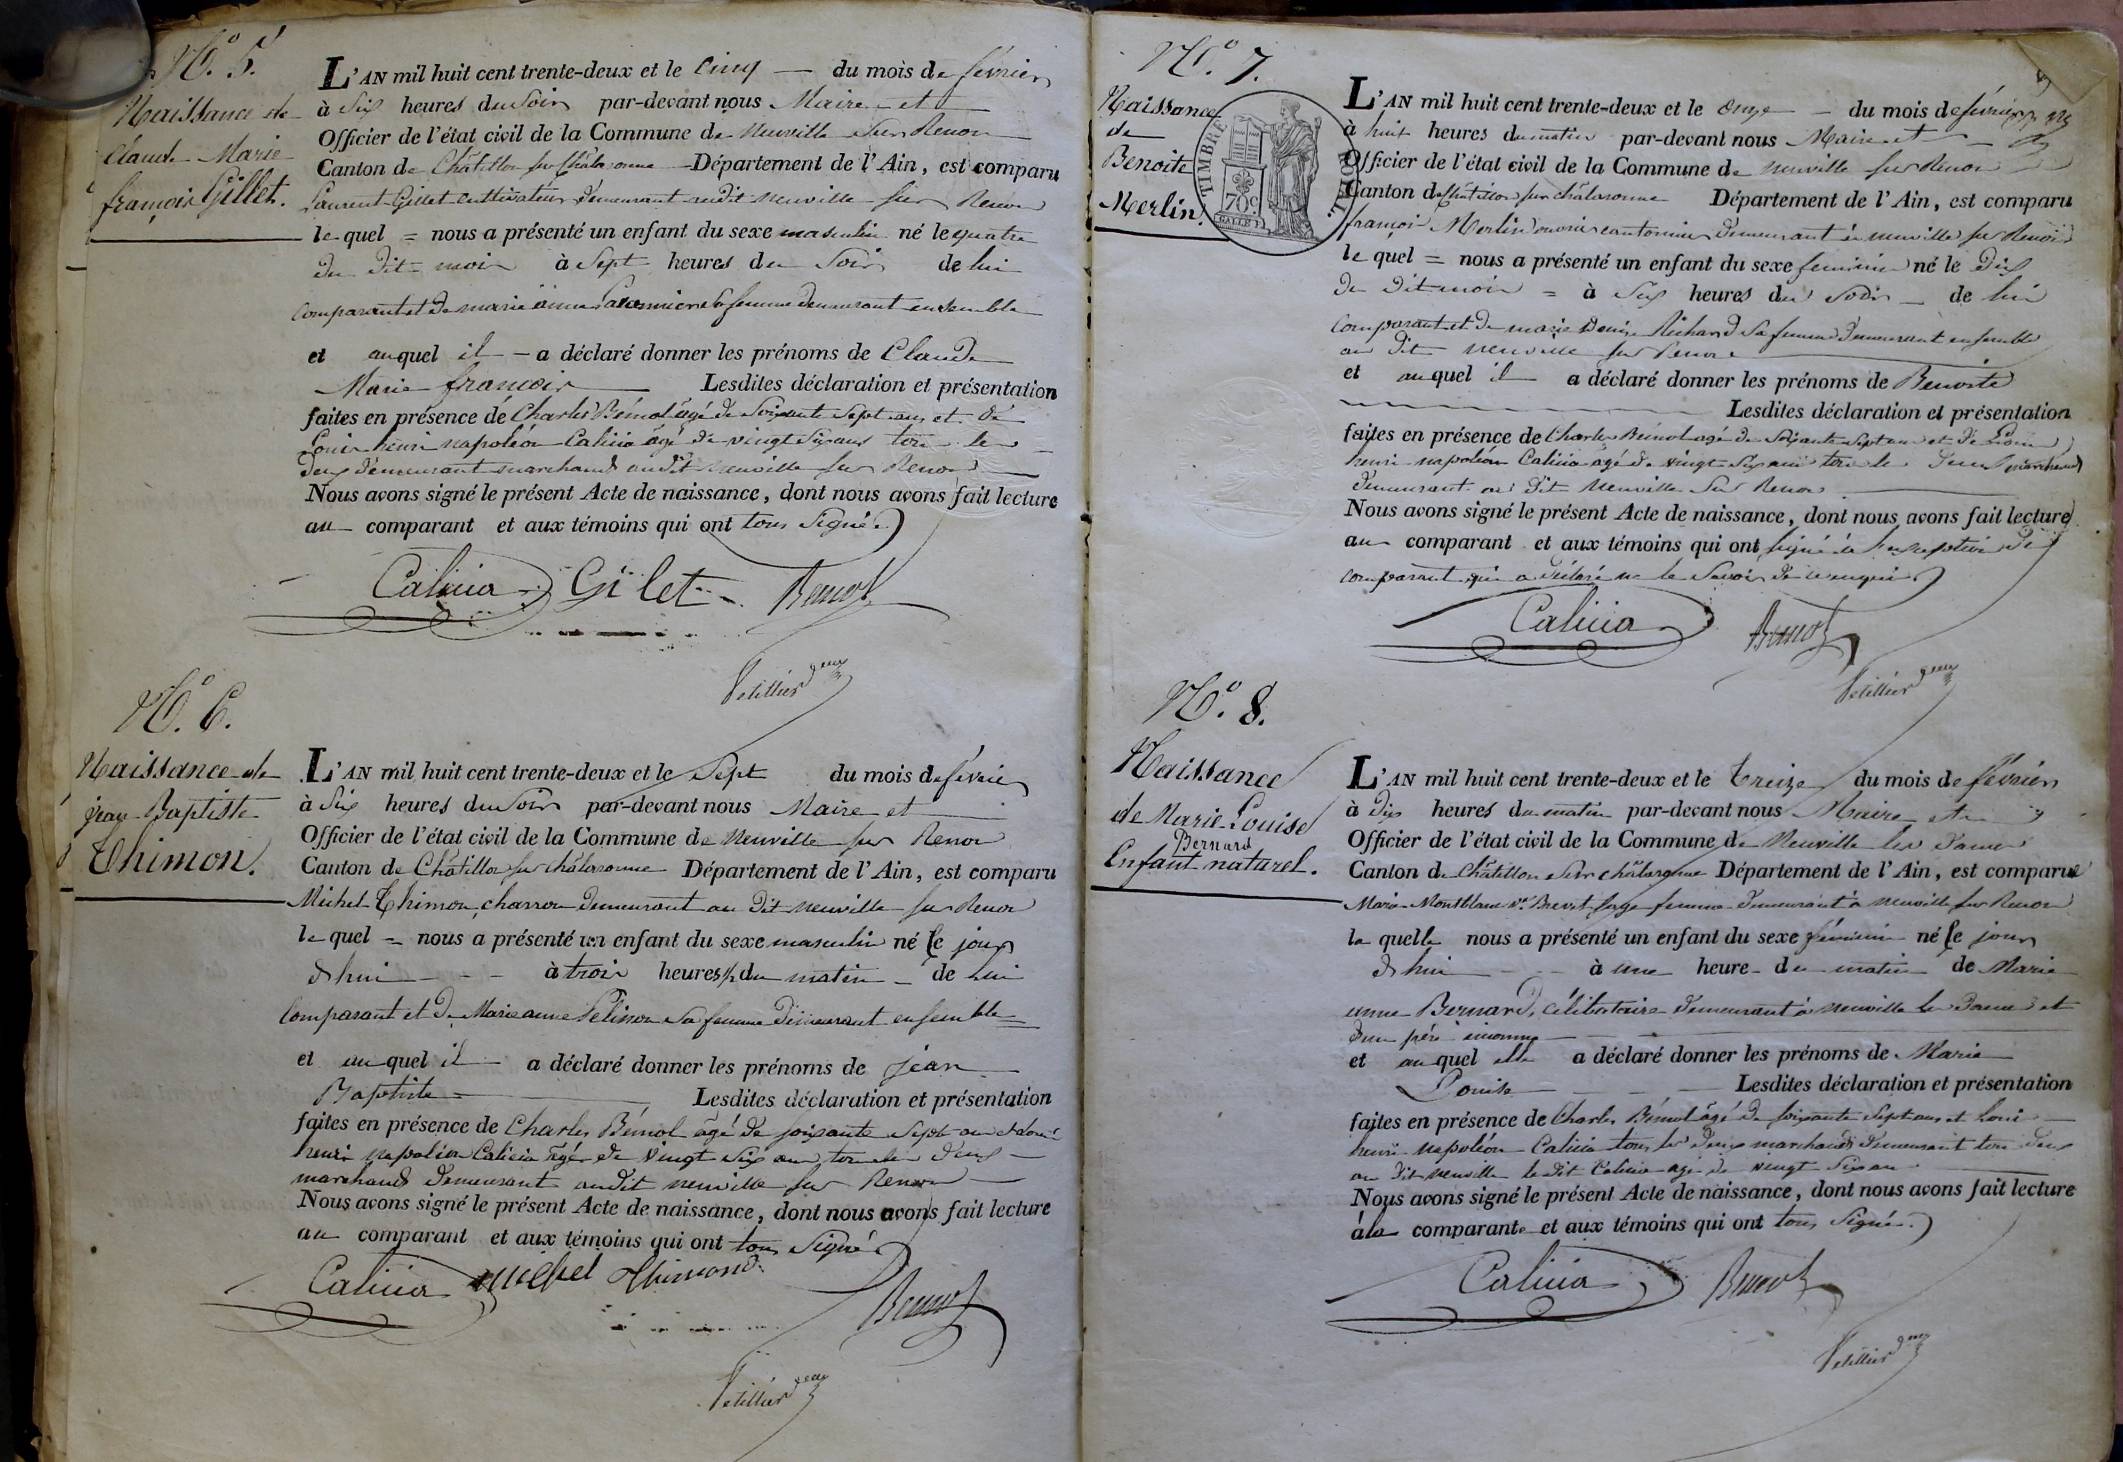 N.º 5.
Naissance de
Claude Marie
françois Gillet.
L'AN mil huit cent trente-deux et le cinq du mois de février
à six heures du soir par-devant nous Maire et
Officier de l'état civil de la Commune de Neuville sur Renon
Canton de Châtillon sur Chalaronne Département de l'Ain, est comparu
Laurent Gillet cultivateur demeurant audit Neuville sur Renon
lequel = nous a présenté un enfant du sexe masculin né le quatre
du dit mois à sept heures du soir de lui
comparant et de marie sa femme demeurant ensemble
et auquel il a déclaré donner les prénoms de Claude
Marie françois Lesdites déclaration et présentation
faites en présence de Charles Bémol âgé de soixante sept ans et de
Louis henri napoléon Calicia âgé de vingt six ans tous les
deux demeurant marchands audit Neuville sur Renon
Nous avons signé le présent Acte de naissance, dont nous avons fait lecture
au comparant et aux témoins qui ont tous signé.
Calicia Gilet Bemol
N.º 6.
Naissance de
jean Baptiste
Thimon.
L'AN mil huit cent trente-deux et le sept du mois de février
à six heures du soir par-devant nous Maire et
Officier de l'état civil de la Commune de Neuville sur Renon
Canton de Châtillon sur chalaronne Département de l'Ain, est comparu
Michel Thimon, charron demeurant au dit Neuville sur Renon
lequel = nous a présenté un enfant du sexe masculin né le jour
d'hui à trois heures du matin de lui
comparant et de Marie anne Pelisson sa femme demeurant ensemble
et auquel il a déclaré donner les prénoms de jéan
Baptiste Lesdites déclaration et présentation
faites en présence de Charles Bémol âgé de soixante sept ans et Louis
henri napoléon Calicia âgé de vingt six ans tous les deux
marchands demeurant audit neuville sur Renon
Nous avons signé le présent Acte de naissance, dont nous avons fait lecture
au comparant et aux témoins qui ont tous signé
Calicia michel thimond Bemol
N.º 7.
Naissance
de
Benoite
Merlin.
TIMBRE ROYAL
70c
L'AN mil huit cent trente-deux et le onze du mois de février
à huit heures du matin par-devant nous Maire et
Officier de l'état civil de la Commune de Neuville sur Renon
Canton de Châtillon sur chalaronne Département de l'Ain, est comparu
françois Merlin ouvrier cantonnier demeurant à neuville sur Renon
lequel = nous a présenté un enfant du sexe feminin né le dix
du dit mois = à six heures du soir de lui
comparant et de marie Denise Richard sa femme demeurant ensemble
au dit neuville sur Renon
et auquel il a déclaré donner les prénoms de Benoite
Lesdites déclaration et présentation
faites en présence de Charles Bémol âgé de soixante sept ans et de Louis
henri napoléon Calicia âgé de vingt six ans tous les deux marchands
demeurant au dit Neuville sur Renon
Nous avons signé le présent Acte de naissance, dont nous avons fait lecture
au comparant et aux témoins qui ont signé à l'exception du
comparant qui a déclaré ne le savoir de ce enquis
Calicia Bemol
N.º 8.
Naissance
de Marie Louise
Bernard
Enfant naturel.
L'AN mil huit cent trente-deux et le treize du mois de février
à dix heures du matin par-devant nous Maire et
Officier de l'état civil de la Commune de Neuville les Dames
Canton de Châtillon sur chalaronne Département de l'Ain, est comparue
Marie Montblanc Ve Brevet sage femme demeurant à neuville sur Renon
laquelle nous a présenté un enfant du sexe féminin né le jour
d'hui à une heure du matin de Marie
anne Bernard, célibataire demeurant à neuville les Dames et
d'un père inconnu
et auquel elle a déclaré donner les prénoms de Marie
Louise Lesdites déclaration et présentation
faites en présence de Charles Bémol âgé de soixante sept ans et Louis
henri Napoléon Calicia tous les deux marchands demeurant tous deux
au dit neuville le dit Calicia âgé de vingt six ans
Nous avons signé le présent Acte de naissance, dont nous avons fait lecture
à la comparante et aux témoins qui ont tous signé.
Calicia Bemol